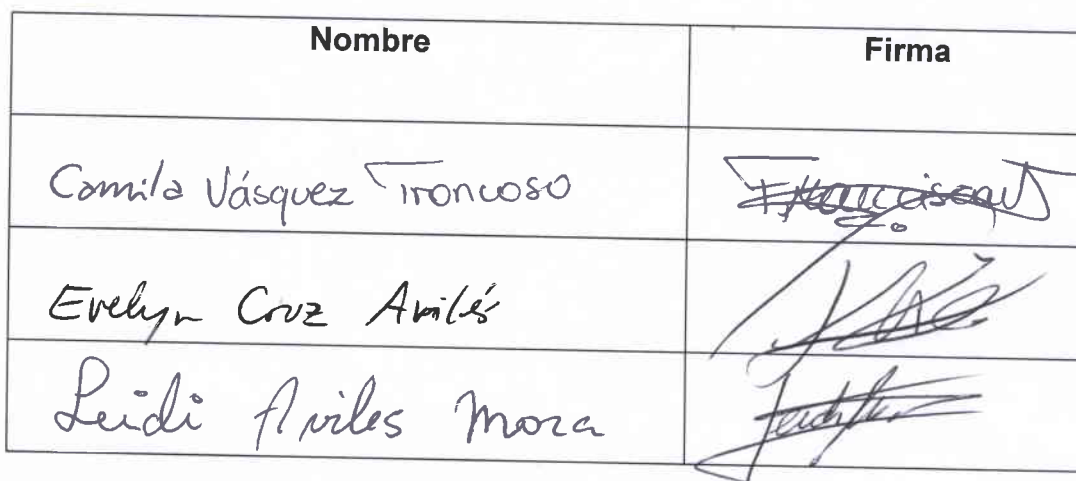 Nombre Firma
Camila Vásquez Troncoso
Evelyn Cruz Avilés
Leidi Aviles Mora